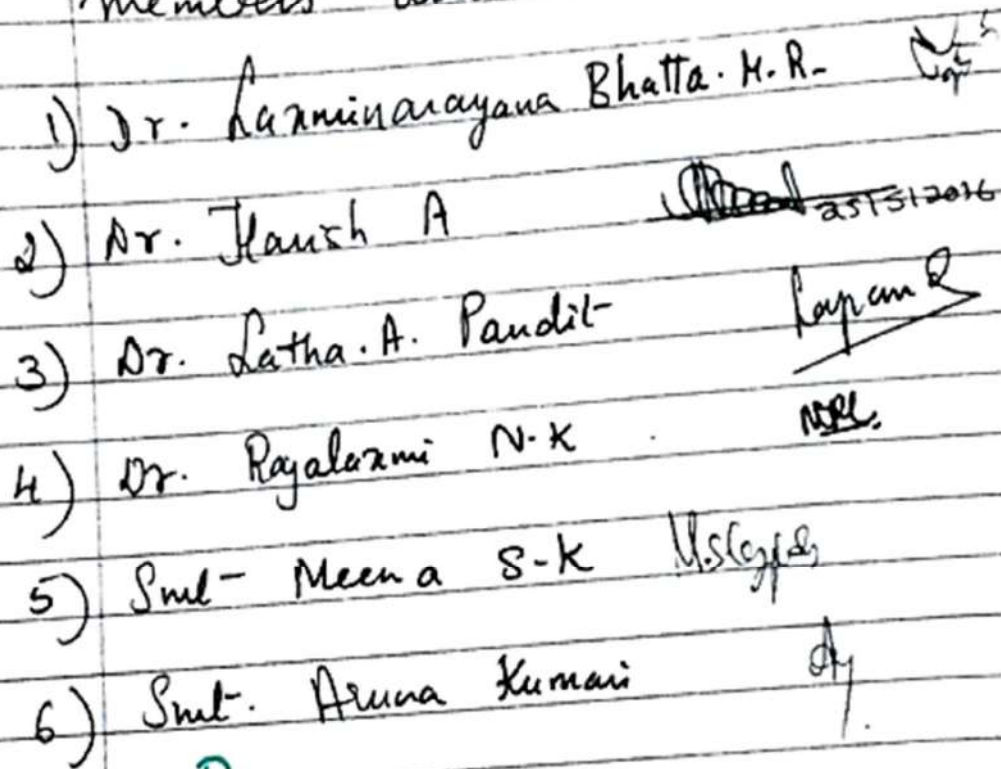 members
1) Dr. Laxminarayana Bhatta. M. R.
2) Dr. Harish A 25/5/2016
3) Dr. Latha. A. Pandit
4) Dr. Rajalaxmi N.K
5) Smt Meena S-K
6) Smt. Aruna Kumari